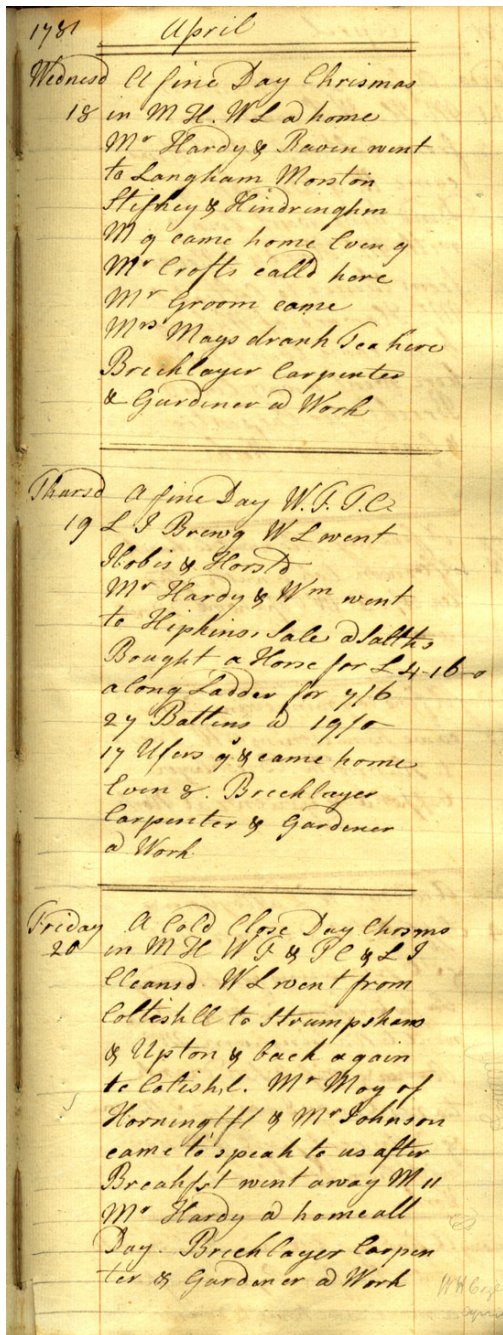 1781 April
Wednesd A fine Day Chrismas
18 in M H. W L a home
Mr Hardy & Raven went
to Langham Morston
Stifkey & Hindringhm
M 9 came home Even 9
Mr Crofts calld here
Mr Groom came
Mrs Mays drank Tea here
Bricklayer Carpenter
& Gardener a Work
Thursd A fine Day W. F. T. C
19 L I Brewg W L went
Hobis & Horstd
Mr Hardy & Wm went
to Hipkins Sale a Salths
Bought a Horse for L 4-16-0
a long Ladder for 7/6
27 Battins a 19/0
17 & came home
Even 8. Bricklayer
Carpenter & Gardener
a Work
Friday A Cold Close Day Chrsms
20 in M H W F & T C & L I
Cleansd. W L went from
Coltishll to Strumpsham
& Upton & back again
to Cotishl. Mr Moy of
Horningtft & Mr Johnson
came to speak to us after
Breakfst went away M 11
Mr Hardy a home all
Day. Bricklayer Carpen
ter & Gardener a Work